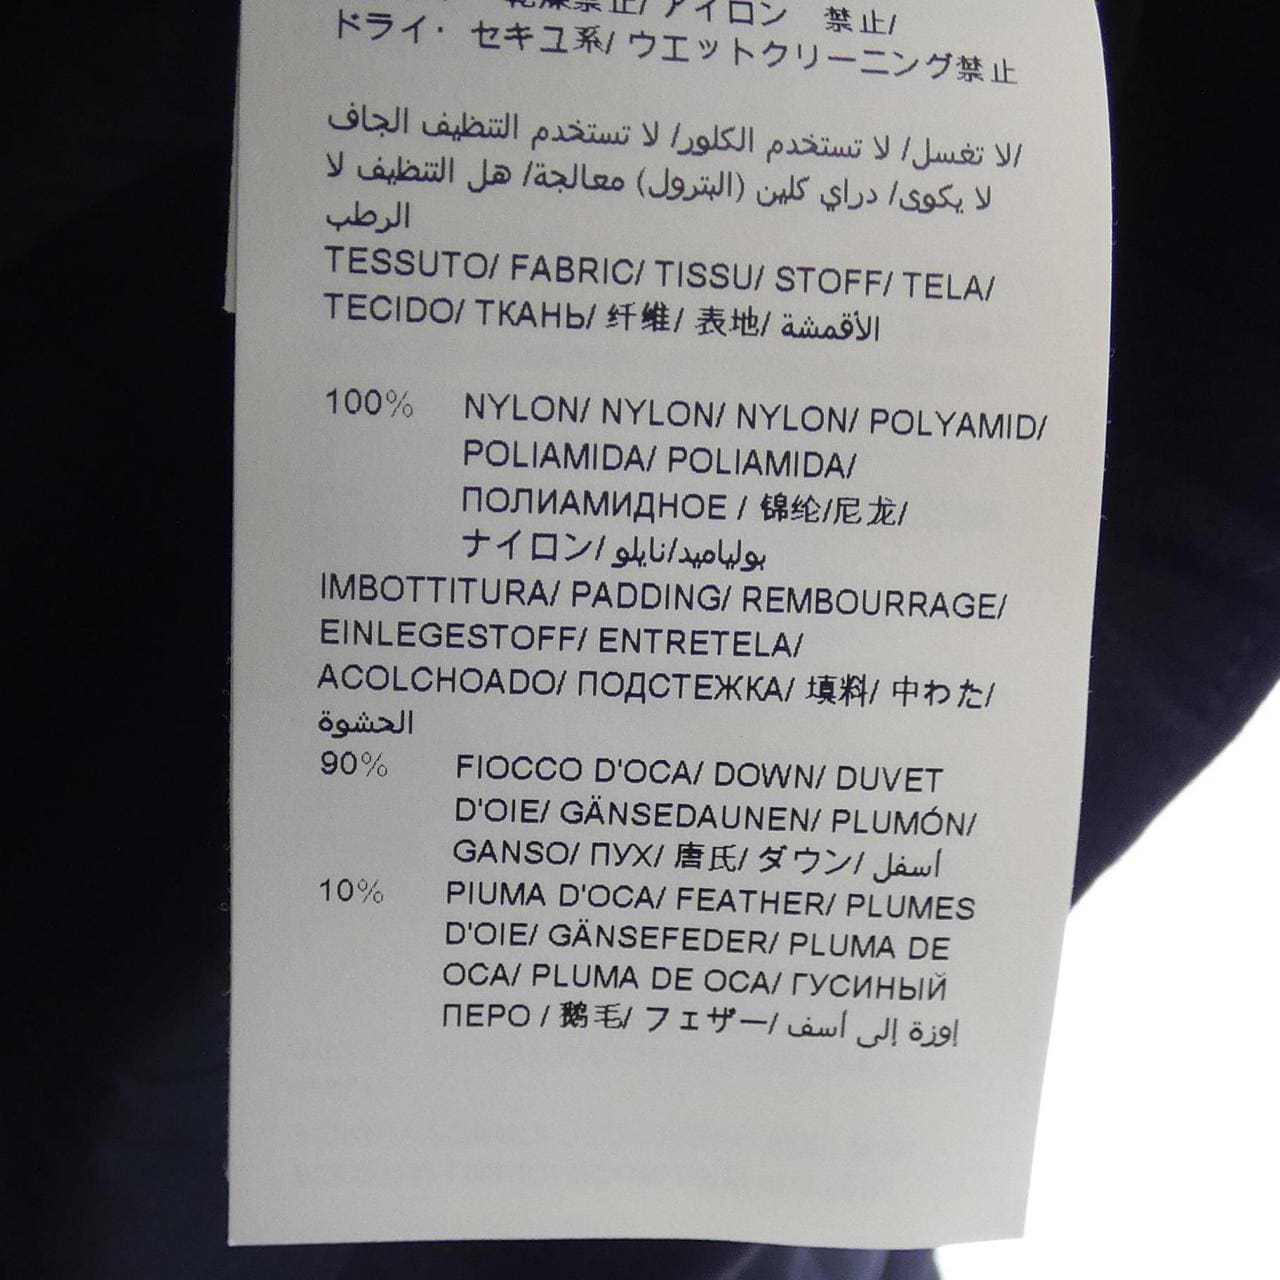 乾燥禁止/ アイロン 禁止/
ドライ・ セキユ系/ ウエットクリーニング禁止
لا تغسل/ لا تستخدم الكلور/ لا تستخدم التنظيف الجاف/
لا يكوى/ دراي كلين (البترول) معالجة/ هل التنظيف لا
الرطب
TESSUTO/ FABRIC/ TISSU/ STOFF/ TELA/
TECIDO/ ТКАНЬ/ 纤维/ 表地/ الأقمشة
100% NYLON/ NYLON/ NYLON/ POLYAMID/
POLIAMIDA/ POLIAMIDA/
ПОЛИАМИДНОЕ / 锦纶/尼龙/
ナイロン/ بولياميد/نايلو
IMBOTTITURA/ PADDING/ REMBOURRAGE/
EINLEGESTOFF/ ENTRETELA/
ACOLCHOADO/ ПОДСТЕЖКА/ 填料/ 中わた/
الحشوة
90% FIOCCO D'OCA/ DOWN/ DUVET
D'OIE/ GÄNSEDAUNEN/ PLUMÓN/
GANSO/ ПУХ/ 唐氏/ ダウン/ أسفل
10% PIUMA D'OCA/ FEATHER/ PLUMES
D'OIE/ GÄNSEFEDER/ PLUMA DE
OCA/ PLUMA DE OCA/ ГУСИНЫЙ
ПЕРО / 鹅毛/ フェザー/ إوزة إلى أسف